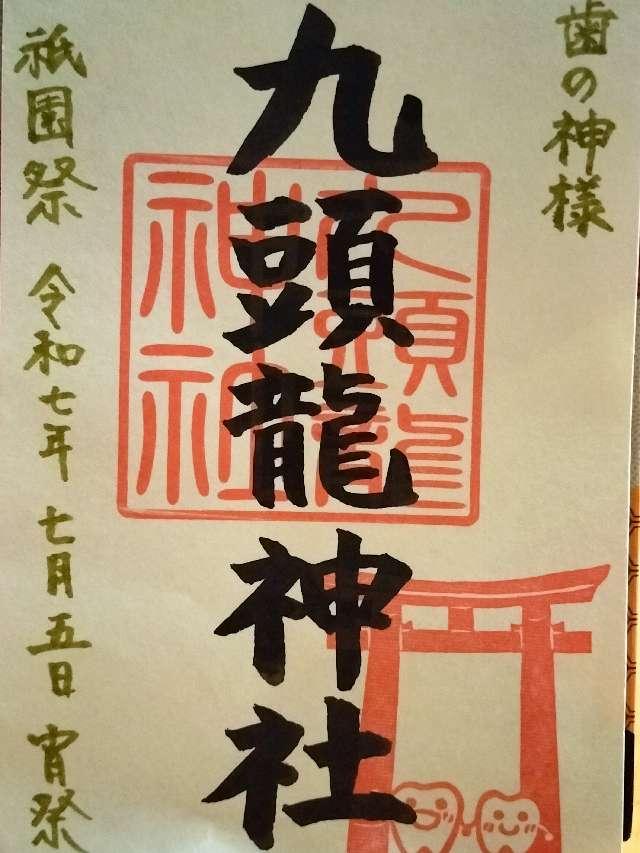 歯の神様
九頭龍神社
九頭龍
神社
祇園祭 令和七年 七月五日 宵祭